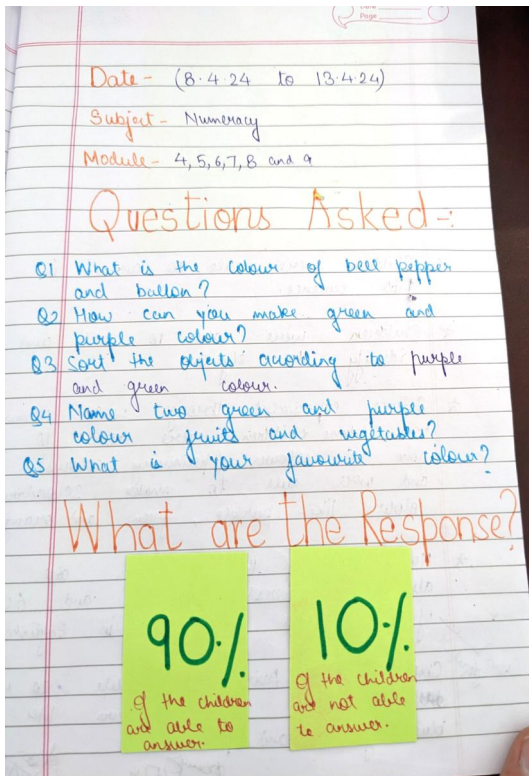 Page
Date - (8.4.24 to 13.4.24)
Subject - Numeracy
Module - 4, 5, 6, 7, 8 and 9
Questions Asked -:
Q1 What is the colour of bell pepper
and ballon?
Q2 How can you make green and
purple colour?
Q3 Sort the objects acuording to purple
and green colour.
Q4 Name two green and purple
colour fruits and vegetables?
Q5 What is your favourite colour?
What are the Response?
90%
of the children
are able to
answer.
10%
of the children
are not able
to answer.